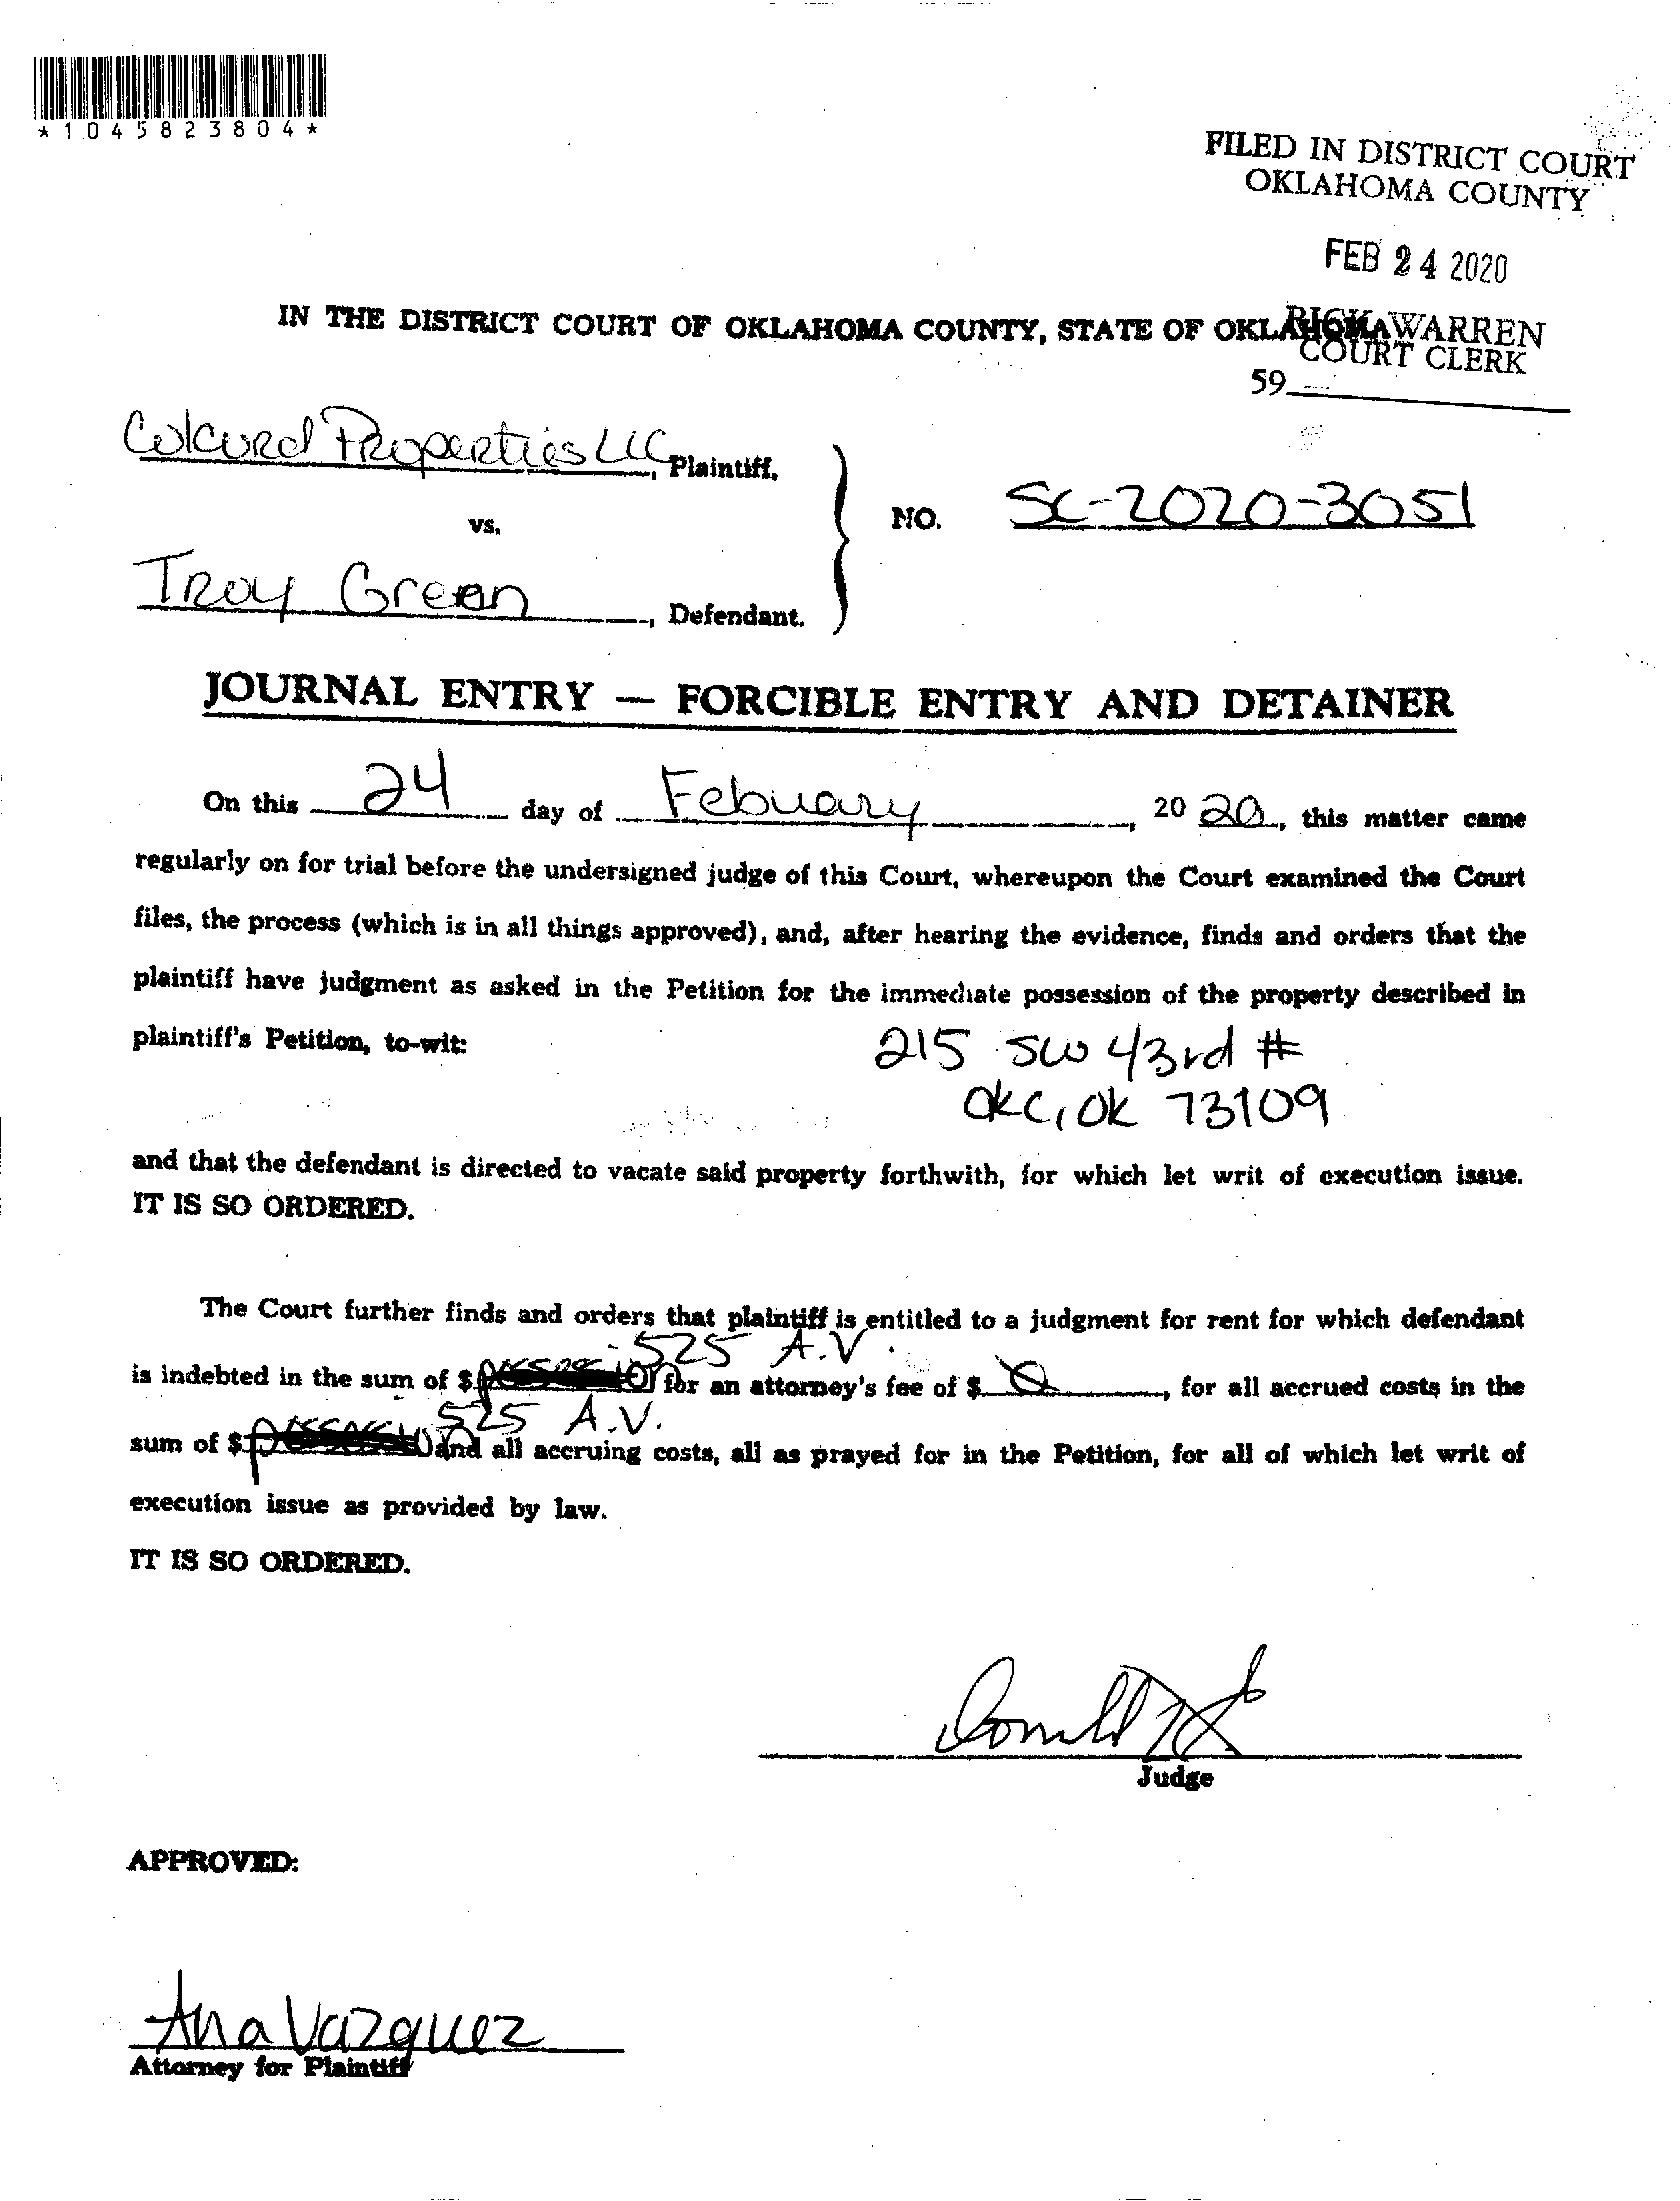 *1045823804*
FILED IN DISTRICT COURT
OKLAHOMA COUNTY
FEB 24 2020
RICK WARREN
COURT CLERK
59
IN THE DISTRICT COURT OF OKLAHOMA COUNTY, STATE OF OKLAHOMA
Properties LLC, Plaintiff,
vs.
NO. SC-2020-3051
Troy Green, Defendant.
JOURNAL ENTRY — FORCIBLE ENTRY AND DETAINER
On this 24 day of Febuary, 20 20, this matter came
regularly on for trial before the undersigned judge of this Court, whereupon the Court examined the Court
files, the process (which is in all things approved), and, after hearing the evidence, finds and orders that the
plaintiff have judgment as asked in the Petition for the immediate possession of the property described in
plaintiff's Petition, to-wit: 215 SW 43rd #
OKC, OK 73109
and that the defendant is directed to vacate said property forthwith, for which let writ of execution issue.
IT IS SO ORDERED.
The Court further finds and orders that plaintiff is entitled to a judgment for rent for which defendant
525 A.V.
is indebted in the sum of $ for an attorney's fee of $ 0, for all accrued costs in the
525 A.V.
sum of $ and all accruing costs, all as prayed for in the Petition, for all of which let writ of
execution issue as provided by law.
IT IS SO ORDERED.
Judge
APPROVED:
Ana Vazquez
Attorney for Plaintiff